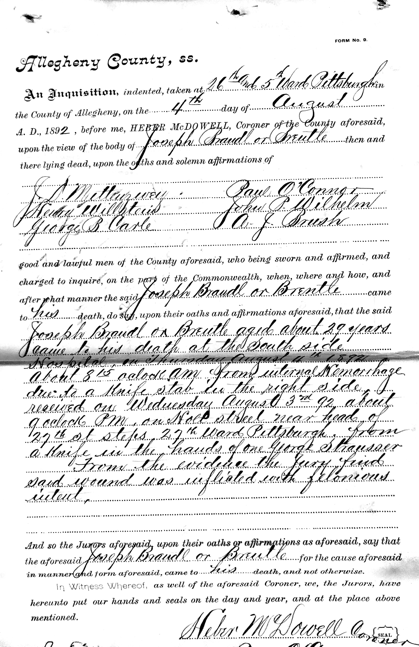 FORM No. 9.
Allegheny County, ss.
An Inquisition, indented, taken at 26th and 5th Ward Pittsburgh in
the County of Allegheny, on the 4th day of August
A. D., 1892, before me, HEBER McDOWELL, Coroner of the County aforesaid,
upon the view of the body of Joseph Braudl or Brentle then and
there lying dead, upon the oaths and solemn affirmations of
Paul O'Connor
Henry Willstein John P. Wilhelm
George B Carle A J Brush
good and lawful men of the County aforesaid, who being sworn and affirmed, and
charged to inquire, on the part of the Commonwealth, when, where and how, and
after what manner the said Joseph Braudl or Brentle came
to his death, do say, upon their oaths and affirmations aforesaid, that the said
Joseph Braudl or Brentle aged about 29 years
came to his death at the South side
Hospital, on August
about 8 oclock AM. from internal Hemorhage
due to a knife stab in the right side,
reseved on Wednesday August 3rd 92, about
9 oclock P.M. on street near head of
27th st steps, 27th Ward Pittsburgh, from
a knife in the hands of one Strausser
From the evidence the Jury find
said wound was inflicted with felonious
intent.
And so the Jurors aforesaid, upon their oaths or affirmations as aforesaid, say that
the aforesaid Joseph Braudl or Brentle for the cause aforesaid
in manner and form aforesaid, came to his death, and not otherwise.
In Witness Whereof, as well of the aforesaid Coroner, we, the Jurors, have
hereunto put our hands and seals on the day and year, and at the place above
mentioned.
Heber McDowell Coroner
SEAL